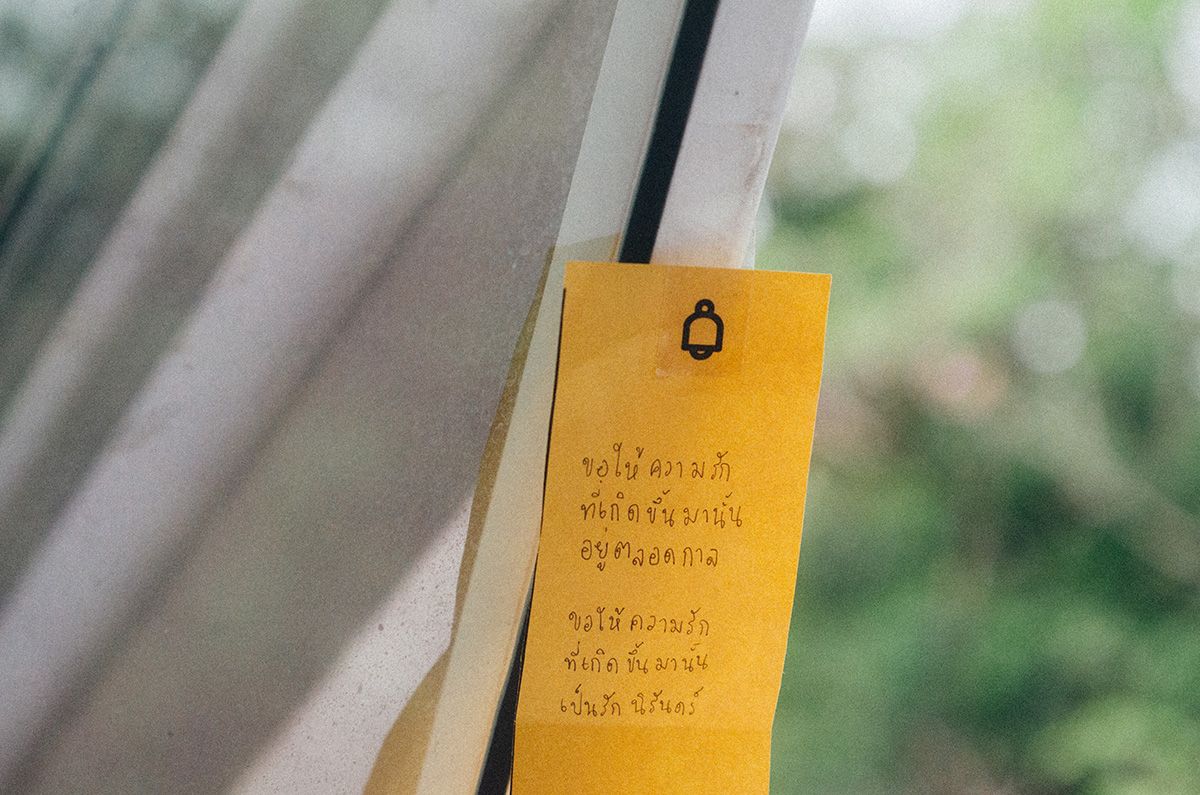 ขอให้ความรัก
ที่เกิดขึ้นมานั้น
อยู่ตลอดกาล
ขอให้ความรัก
ที่เกิดขึ้นมานั้น
เป็นรักนิรันดร์